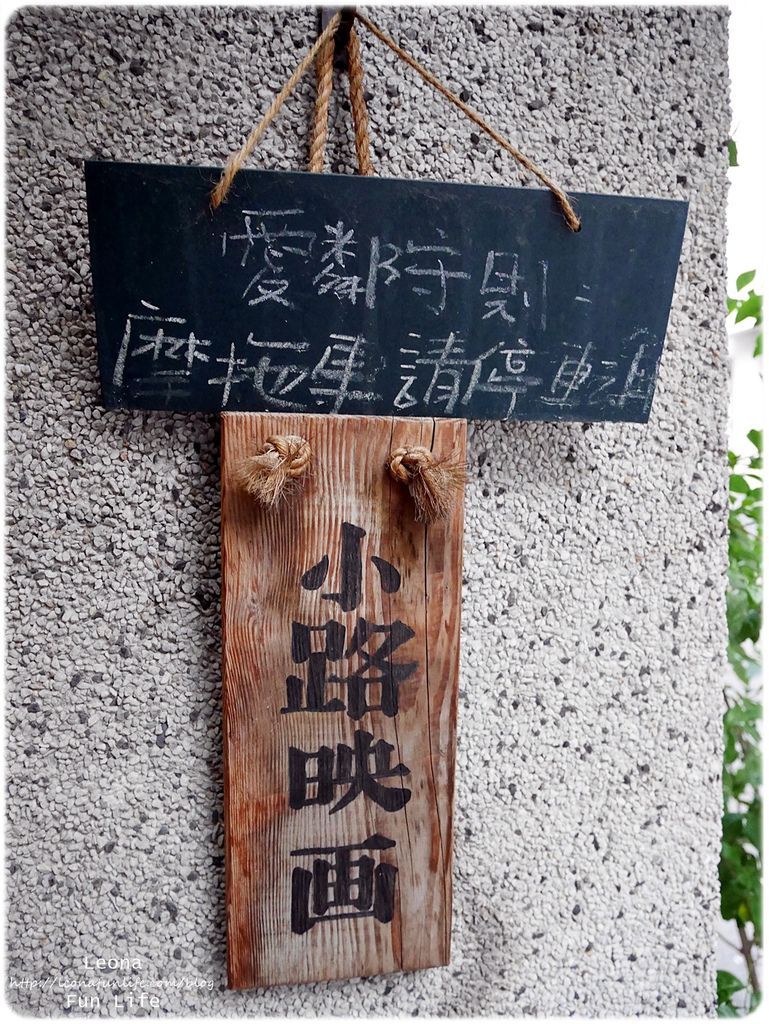 愛鄰守則:
摩拖車請停轉過
小路映画
Leona
http://leonafunlife.com/blog
Fun Life